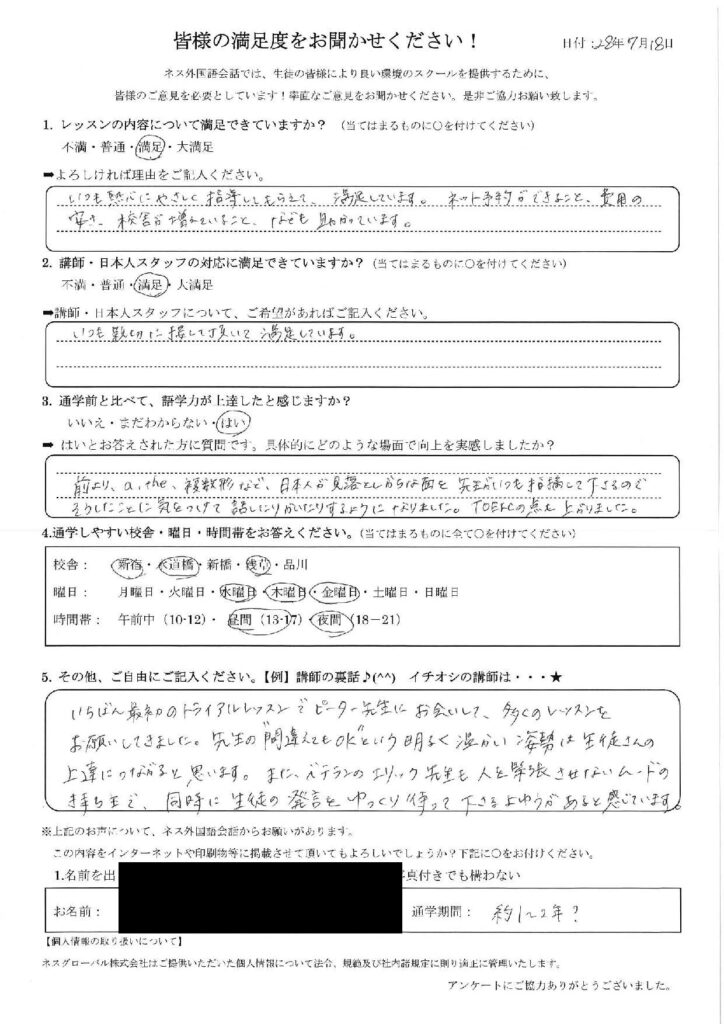 皆様の満足度をお聞かせください！
日付：28年7月18日
ネス外国語会話では、生徒の皆様により良い環境のスクールを提供するために、
皆様のご意見を必要としています！率直なご意見をお聞かせください。是非ご協力お願い致します。
1. レッスンの内容について満足できていますか？ （当てはまるものに○を付けてください）
不満・普通・満足・大満足
➡よろしければ理由をご記入ください。
いつも熱心にやさしく指導してもらえて、満足しています。ネット予約ができること、費用の
安さ、校舎が増えていること、なども助かっています。
2. 講師・日本人スタッフの対応に満足できていますか？（当てはまるものに○を付けてください）
不満・普通・満足・大満足
➡講師・日本人スタッフについて、ご希望があればご記入ください。
いつも親切に接して頂いて満足しています。
3. 通学前と比べて、語学力が上達したと感じますか？
いいえ・まだわからない・はい
➡ はいとお答えされた方に質問です。具体的にどのような場面で向上を実感しましたか？
前より、a, the、複数形など、日本人が見落としがちな面を先生がいつも指摘して下さるので
そうしたことに気をつけて話したりかいたりするようになりました。TOEICの点も上がりました。
4.通学しやすい校舎・曜日・時間帯をお答えください。（当てはまるものに全て○を付けてください）
校舎： 新宿・水道橋・新橋・浅草・品川
曜日： 月曜日・火曜日・水曜日・木曜日・金曜日・土曜日・日曜日
時間帯： 午前中（10-12）・ 昼間（13-17）・夜間（18－21）
5. その他、ご自由にご記入ください。【例】講師の裏話♪(^^) イチオシの講師は・・・★
いちばん最初のトライアルレッスンでピーター先生にお会いして、多くのレッスンを
お願いしてきました。先生の"間違えてもOK"という明るく温かい姿勢は生徒さんの
上達につながると思います。また、ベテランのエリック先生も人を緊張させないムードの
持ち主で、同時に生徒の発言をゆっくり待って下さるよゆうがあると感じています。
※上記のお声について、ネス外国語会話からお願いがあります。
この内容をインターネットや印刷物等に掲載させて頂いてもよろしいでしょうか？下記に○をお付けください。
1.名前を出 真付きでも構わない
お名前： 通学期間： 約1～2年？
【個人情報の取り扱いについて】
ネスグローバル株式会社はご提供いただいた個人情報について法令、規範及び社内諸規定に則り適正に管理いたします。
アンケートにご協力ありがとうございました。